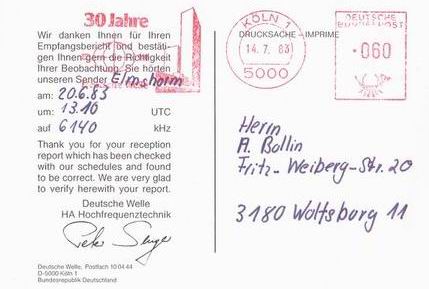 30 Jahre
Wir danken Ihnen für Ihren
Empfangsbericht und bestäti-
gen Ihnen gern die Richtigkeit
Ihrer Beobachtung. Sie hörten
unseren Sender Elmshorn
am: 20.6.83
um: 13.10 UTC
auf 6140 kHz
Thank you for your reception
report which has been checked
with our schedules and found
to be correct. We are very glad
to verify herewith your report.
Deutsche Welle
HA Hochfrequenztechnik
Deutsche Welle, Postfach 10 04 44
D-5000 Köln 1
Bundesrepublik Deutschland
KÖLN 1
14. 7. 83
5000
DRUCKSACHE – IMPRIME
DEUTSCHE
BUNDESPOST
060
Herrn
A. Bollin
Fritz-Weiberg-Str. 20
3180 Wolfsburg 11